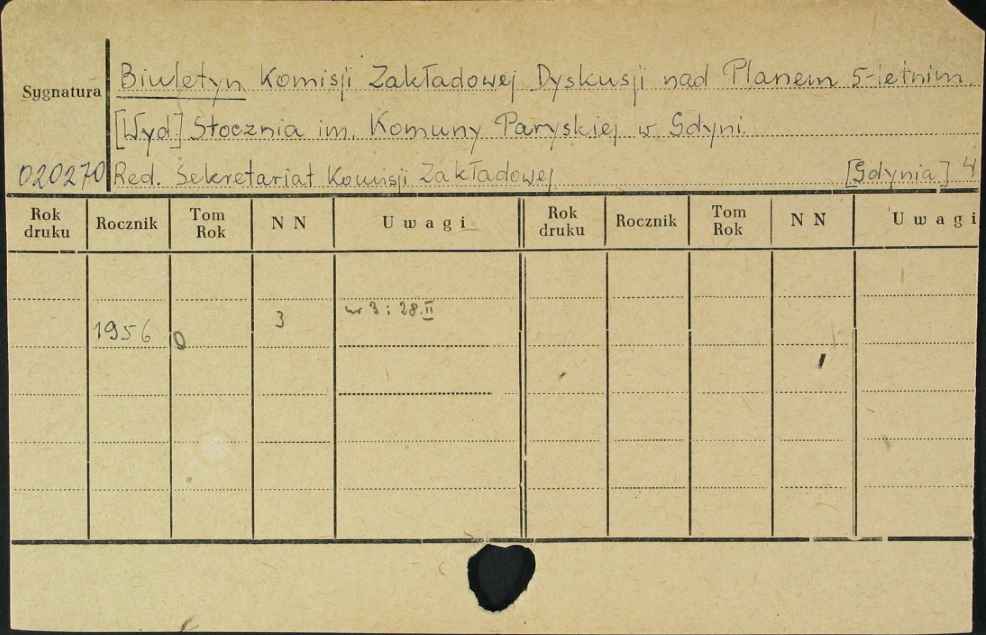 Sygnatura
Biuletyn Komisji Zakładowej Dyskusji nad Planem 5-letnim.
[Wyd] Stocznia im. Komuny Paryskiej w Gdyni.
020270 Red. Sekretariat Komisji Zakładowej [Gdynia] 4
Rok druku Rocznik Tom Rok N N Uwagi Rok druku Rocznik Tom Rok N N Uwagi
1956 0 3 nr 3 : 28.II